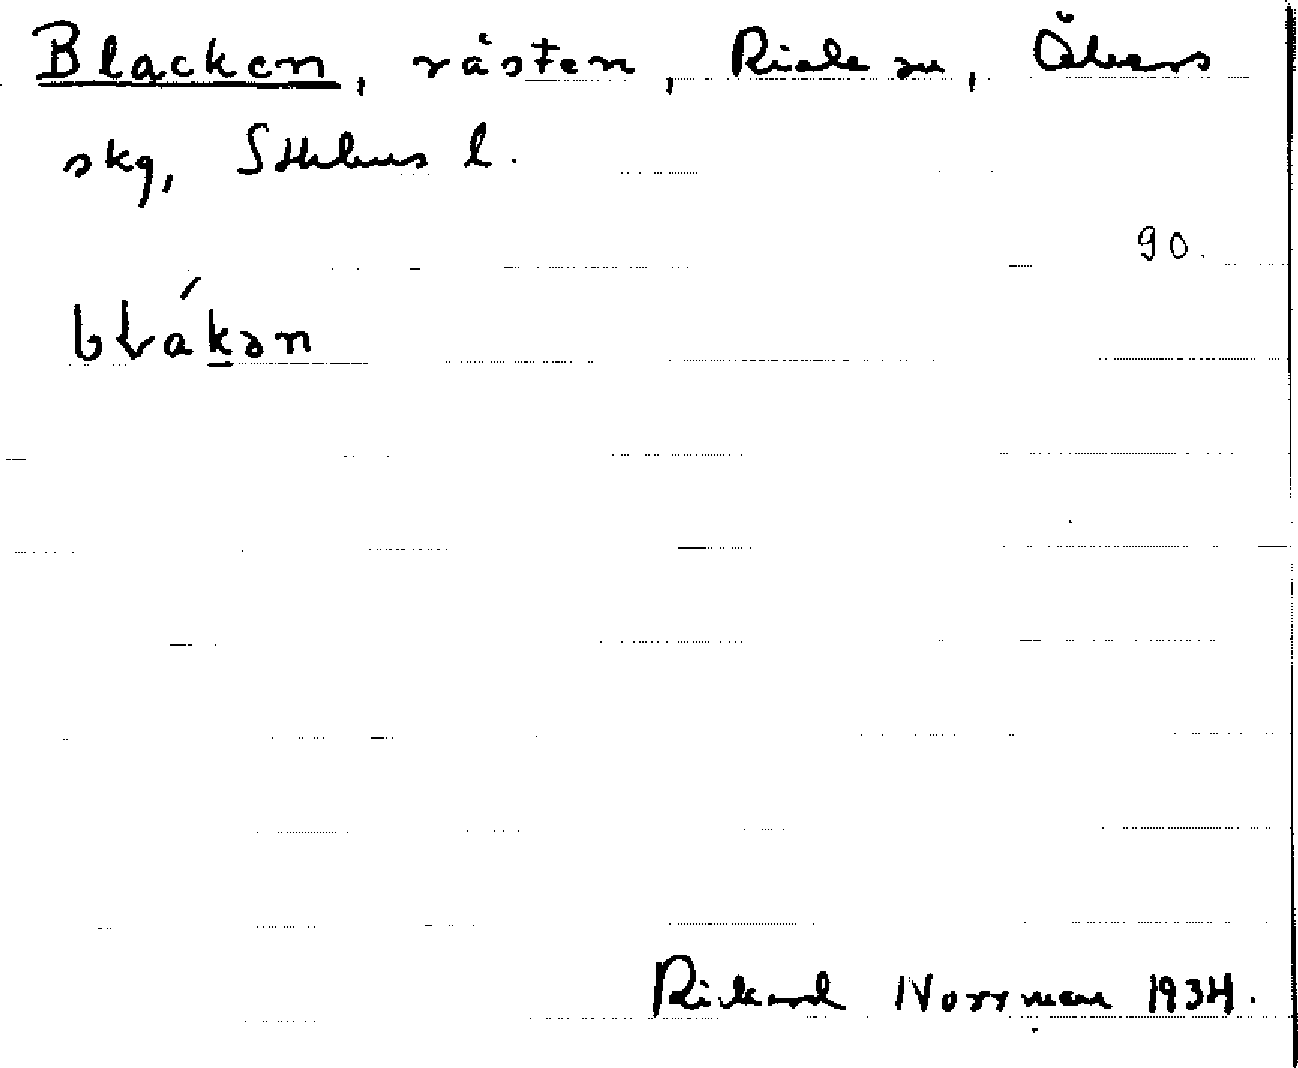 Blacken, råsten, Riala sn, Åkers
skg, Sthlms l.
90.
blákən
Rickard Norrman 1934.